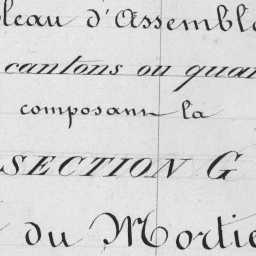 bleau d'Assembla
cantons ou quar
composant la
SECTION G
du Mortie